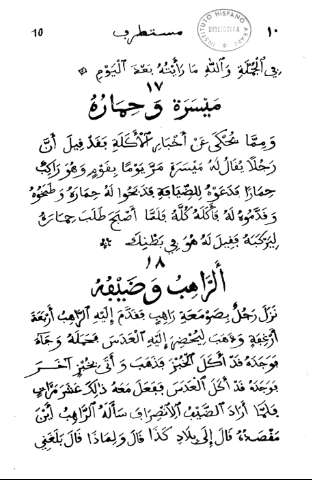 ١٠ مستطرف 10
INSTITUTO HISPANO ARABE
BIBLIOTECA
فِي الْجُمْلَةِ وَاللّٰهِ مَا رَأَيْتُهُ بَعْدَ الْيَوْمِ
١٧
مَيْسَرَة وَحِمَارُهُ
وَمِمَّا يُحْكَى عَنْ أَخْبَارِ الْأَكَلَةِ فَقَدْ قِيلَ أَنَّ
رَجُلًا يُقَالُ لَهُ مَيْسَرَة مَرَّ يَوْمًا بِقَوْمٍ وَهُوَ رَاكِبٌ
حِمَارًا فَدَعَوْهُ لِلضِّيَافَةِ فَذَبَحُوا لَهُ حِمَارَهُ وَطَبَخُوهُ
وَقَدَّمُوهُ لَهُ فَأَكَلَهُ كُلَّهُ فَلَمَّا أَصْبَحَ طَلَبَ حِمَارَهُ
لِيَرْكَبَهُ فَقِيلَ لَهُ هُوَ فِي بَطْنِكَ
١٨
أَلرَّاهِبُ وَضَيْفُهُ
نَزَلَ رَجُلٌ بِصَوْمَعَةِ رَاهِبٍ فَقَدَّمَ إِلَيْهِ الرَّاهِبُ أَرْبَعَةَ
أَرْغِفَةٍ وَذَهَبَ لِيُحْضِرَ إِلَيْهِ الْعَدَسَ فَحَمَلَهُ وَجَاءَ
فَوَجَدَهُ قَدْ أَكَلَ الْخُبْزَ فَذَهَبَ وَأَتَى بِخُبْزٍ آخَرَ
فَوَجَدَهُ قَدْ أَكَلَ الْعَدَسَ فَفَعَلَ مَعَهُ ذٰلِكَ عَشْرَ مَرَّاتٍ
فَلَمَّا أَرَادَ الضَّيْفُ الْاِنْصِرَافَ سَأَلَهُ الرَّاهِبُ أَيْنَ
مَقْصَدُهُ قَالَ إِلَى بِلَادِ كَذَا قَالَ وَلِمَاذَا قَالَ بَلَغَنِي